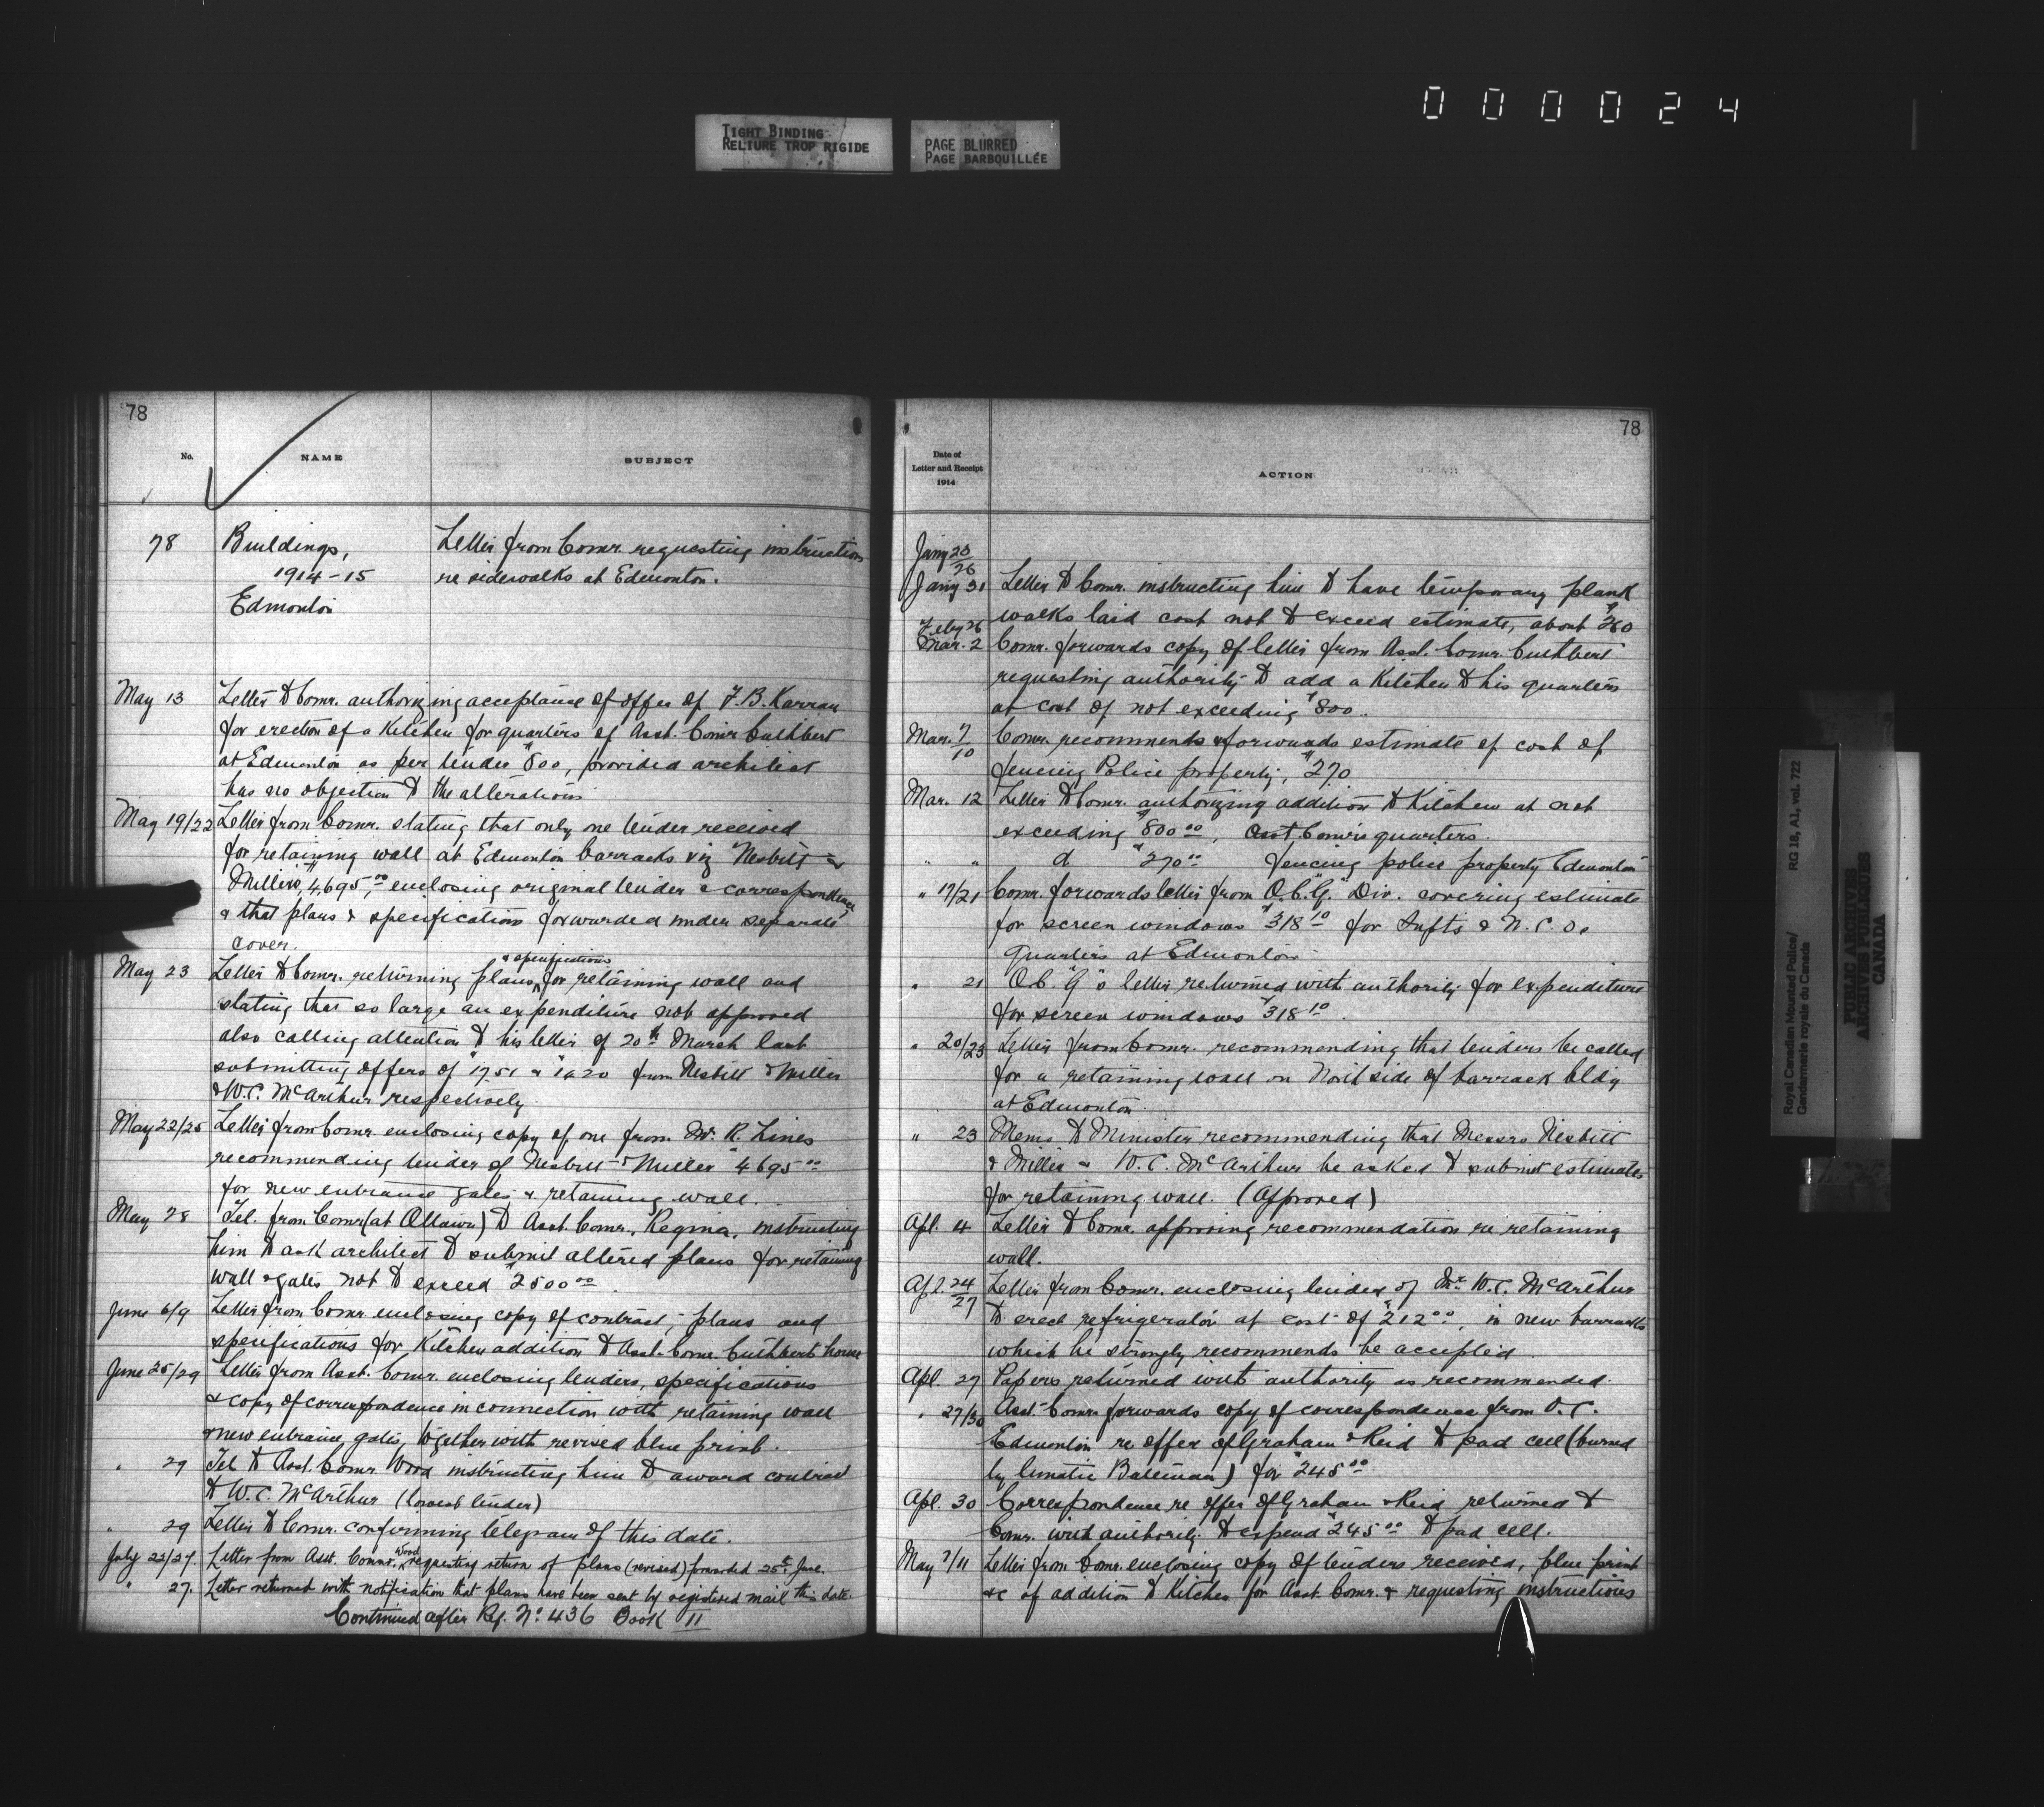 000024
TIGHT BINDING
RELIURE TROP RIGIDE
PAGE BLURRED
PAGE BARBOUILLÉE
78
No.
NAME
SUBJECT
78
Buildings,
1914-15
Edmonton
Letter from Comr. requesting instructions
re sidewalks at Edmonton.
May 13 Letter to Comr. authorizing acceptance of offer of F.B. Karran
for erection of a Kitchen for quarters of Asst. Comr Cuthbert
at Edmonton as per tender $800, provided architect
has no objection to the alterations
May 19/22 Letter from Comr. stating that only one tender received
for retaining wall at Edmonton barracks viz Nesbitt &
Millers, $4,695.00 enclosing original tender & correspondence
& that plans & specifications forwarded under separate
cover.
May 23 Letter to Comr. returning plans & specifications for retaining wall and
stating that so large an expenditure not approved
also calling attention to his letter of 20th March last
submitting offers of $1751 & $1620 from Nesbitt & Miller
& W.C. McArthur respectively
May 22/25 Letter from Comr. enclosing copy of one from Mr. R. Lines
recommending tender of Nesbitt & Miller $4695.00
for new entrance gates & retaining wall.
May 28 Tel. from Comr (at Ottawa) to Asst. Comr. Regina, instructing
him to ask architect to submit altered plans for retaining
wall & gates not to exceed $2500.00
June 6/9 Letter from Comr. enclosing copy of contract, plans and
specifications for Kitchen addition to Asst. Comr. Cuthbert house
June 25/29 Letter from Asst. Comr. enclosing tenders, specifications
& copy of correspondence in connection with retaining wall
& new entrance gates, together with revised blue print.
" 29 Tel. to Asst. Comr. Wood instructing him to award contract
to W.C. McArthur (lowest tender)
" 29 Letter to Comr. confirming telegram of this date.
July 22/27. Letter from Asst. Commr. Wood requesting return of plans (revised) forwarded 25th June.
" 27. Letter returned with notification that plans have been sent by registered mail this date.
Continued after Ref. No. 436 Book II
78
Date of
Letter and Receipt
1914
ACTION
Jany 23/26
Jany 31 Letter to Comr. instructing him to have temporary plank
walks laid cost not to exceed estimate, about $260
Feby 26
Mar. 2 Comr. forwards copy of letter from Asst. Comr. Cuthbert
requesting authority to add a Kitchen to his quarters
at cost of not exceeding $800.
Mar. 7/10 Comr. recommends & forwards estimate of cost of
fencing Police property, $270
Mar. 12 Letter to Comr. authorizing addition to Kitchen at not
exceeding $800.00, Asst. Comr's quarters.
" " $270.00 fencing police property Edmonton
" 17/21 Comr. forwards letter from O.C. "G" Div. covering estimate
for screen windows $318.10 for Supts & N.C.O.
Quarters at Edmonton
" 21 O.C. "G" 's letter returned with authority for expenditure
for screen windows $318.10.
" 20/23 Letter from Comr. recommending that tenders be called
for a retaining wall on North side of barrack bldg
at Edmonton.
" 23 Memo to Minister recommending that Messrs Nesbitt
& Miller & W.C. McArthur be asked to submit estimates
for retaining wall. (Approved)
Apl. 4 Letter to Comr. approving recommendation re retaining
wall.
Apl. 24/27 Letter from Comr. enclosing tender of Mr. W.C. McArthur
to erect refrigerator at cost of $212.00, in new barracks
which he strongly recommends be accepted.
Apl. 27 Papers returned with authority as recommended.
" 27/30 Asst. Comr. forwards copy of correspondence from O.C.
Edmonton re offer of Graham & Reid to pad cell (burned
by lunatic Bateman) for $245.00
Apl. 30 Correspondence re offer of Graham & Reid returned to
Comr. with authority to expend $245.00 to pad cell.
May 7/11 Letter from Comr. enclosing copy of tenders received, blue print
&c of addition to Kitchen for Asst. Comr. & requesting instructions
Royal Canadian Mounted Police/
Gendarmerie royale du Canada
RG 18, A1, vol. 722
PUBLIC ARCHIVES
ARCHIVES PUBLIQUES
CANADA